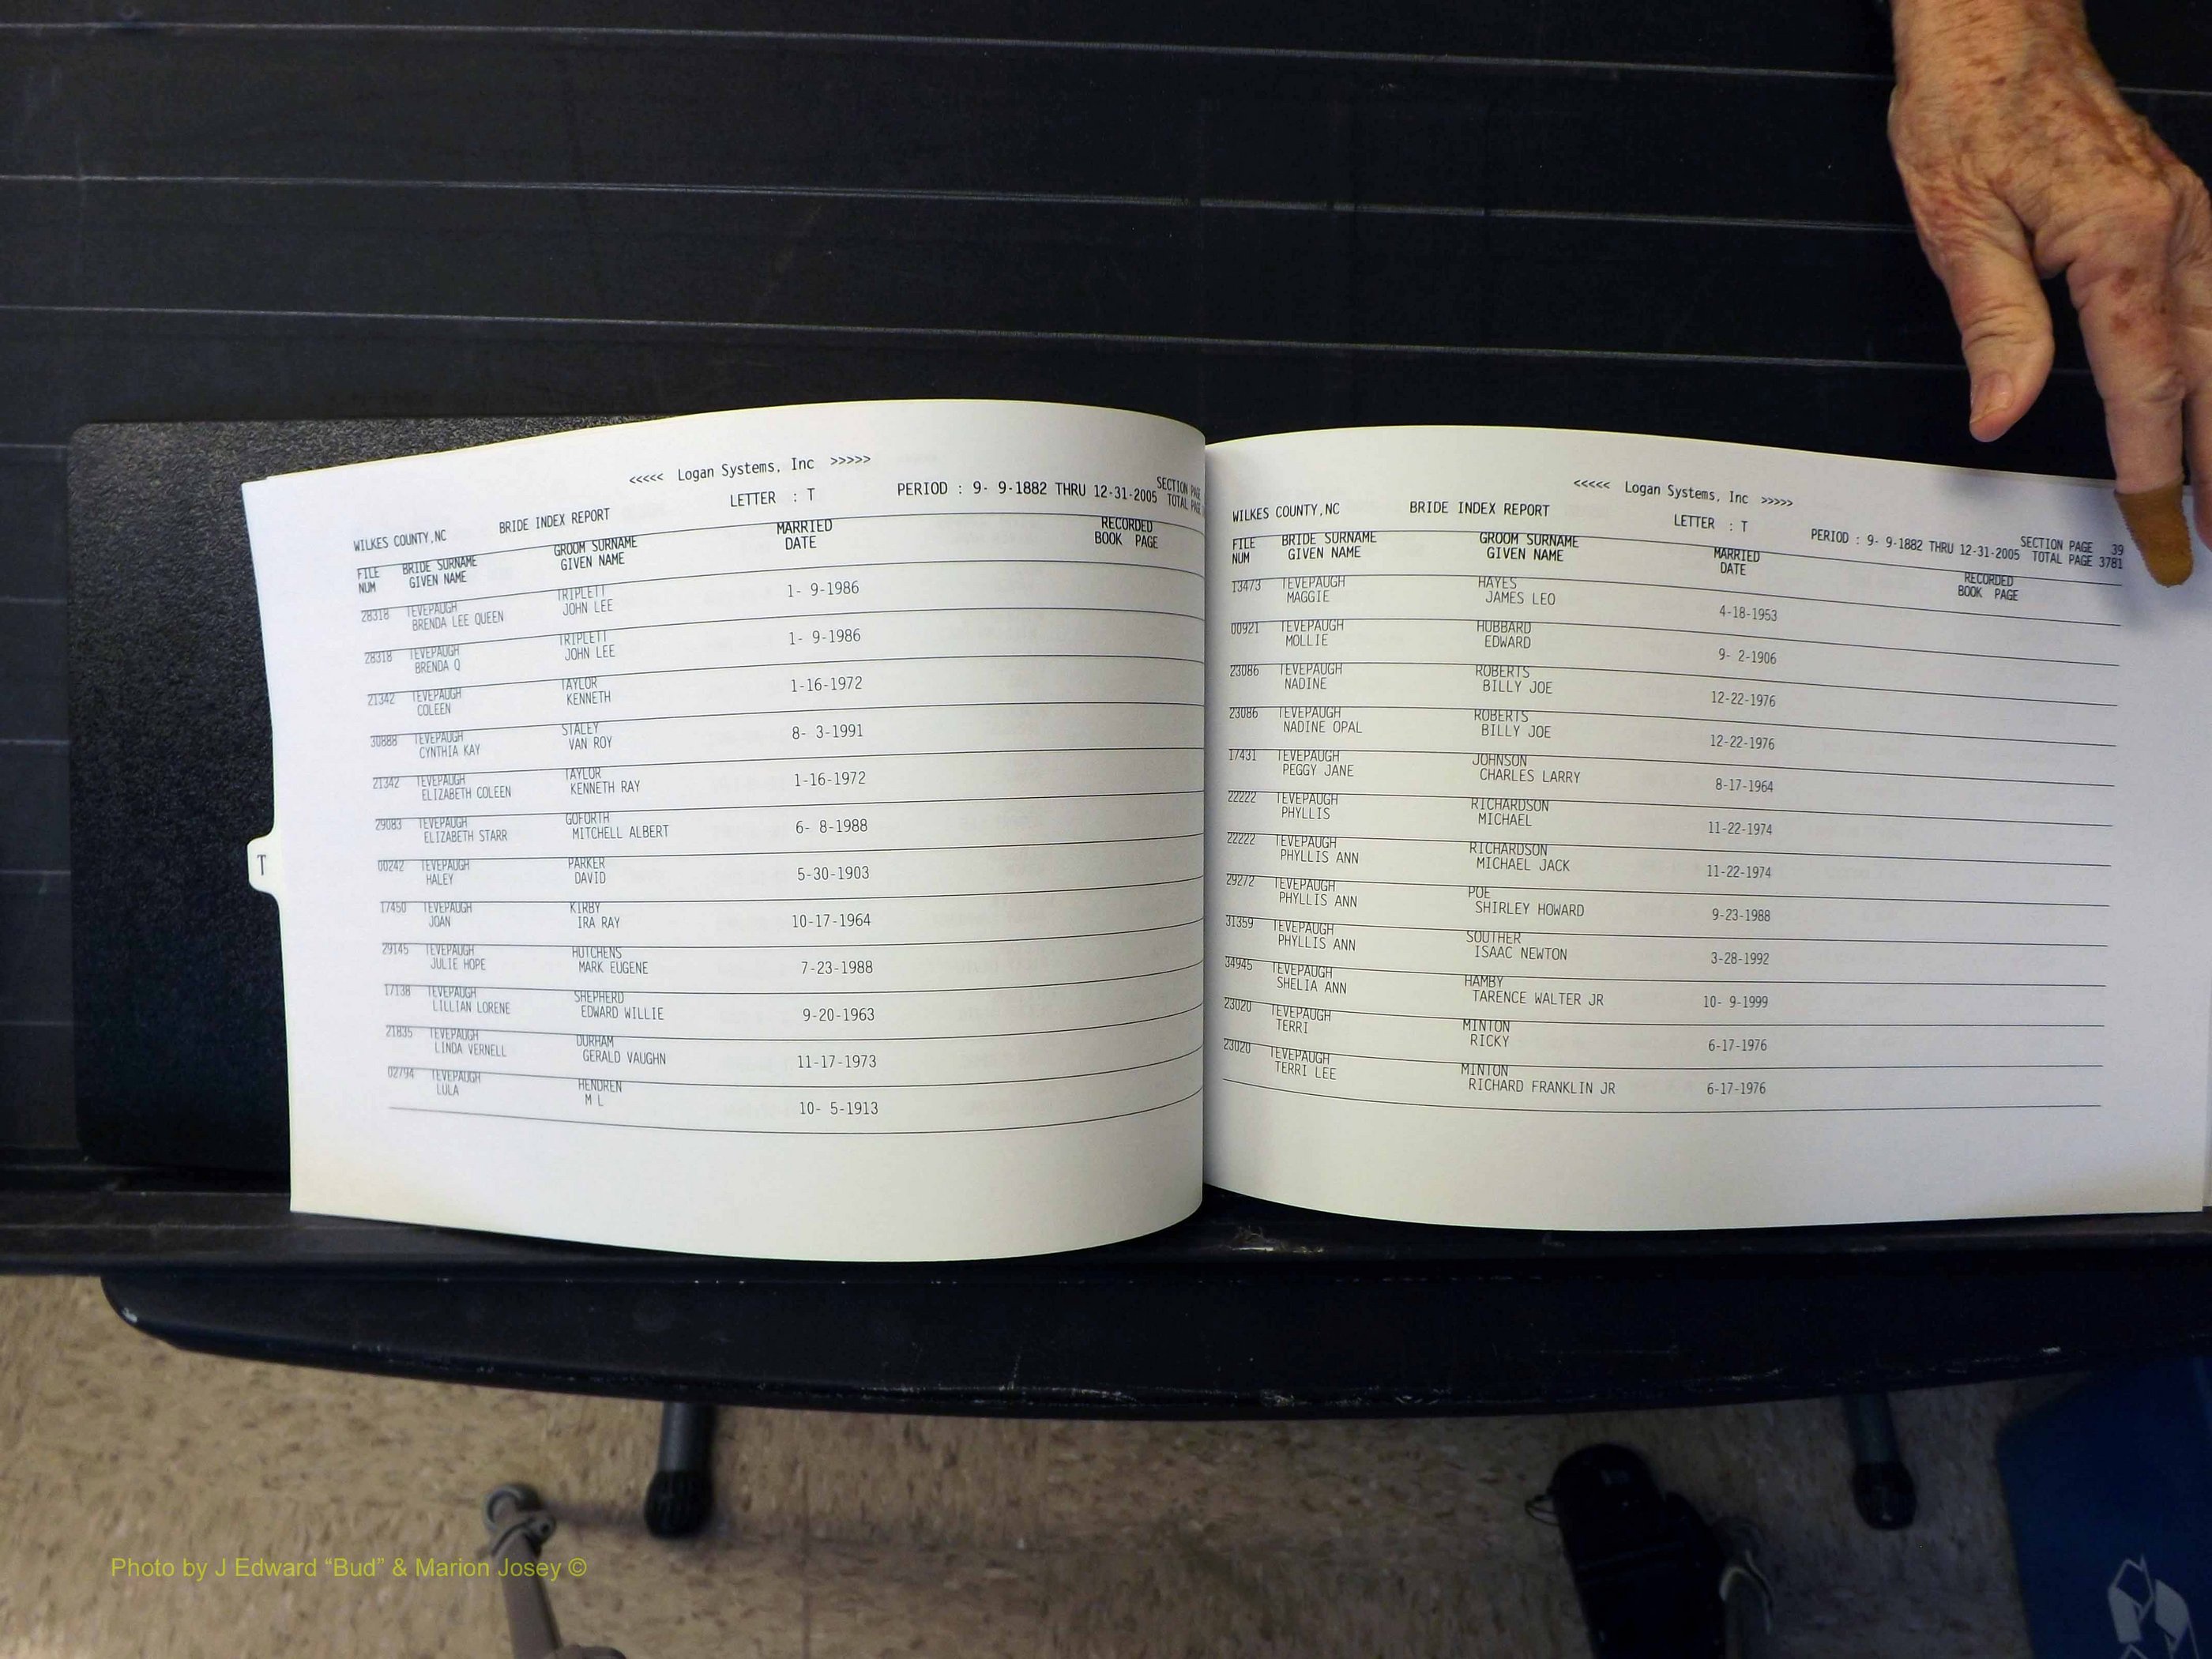 <<<<< Logan Systems, Inc >>>>>
WILKES COUNTY,NC BRIDE INDEX REPORT LETTER : T PERIOD : 9- 9-1882 THRU 12-31-2005 SECTION PAGE
TOTAL PAGE
FILE BRIDE SURNAME GROOM SURNAME MARRIED RECORDED
NUM GIVEN NAME GIVEN NAME DATE BOOK PAGE
28318 TEVEPAUGH TRIPLETT 1- 9-1986
BRENDA LEE QUEEN JOHN LEE
28318 TEVEPAUGH TRIPLETT 1- 9-1986
BRENDA Q JOHN LEE
21342 TEVEPAUGH TAYLOR 1-16-1972
COLEEN KENNETH
30888 TEVEPAUGH STALEY 8- 3-1991
CYNTHIA KAY VAN ROY
21342 TEVEPAUGH TAYLOR 1-16-1972
ELIZABETH COLEEN KENNETH RAY
29083 TEVEPAUGH GOFORTH 6- 8-1988
ELIZABETH STARR MITCHELL ALBERT
00242 TEVEPAUGH PARKER 5-30-1903
HALEY DAVID
17450 TEVEPAUGH KIRBY 10-17-1964
JOAN IRA RAY
29145 TEVEPAUGH HUTCHENS 7-23-1988
JULIE HOPE MARK EUGENE
17138 TEVEPAUGH SHEPHERD 9-20-1963
LILLIAN LORENE EDWARD WILLIE
21835 TEVEPAUGH DURHAM 11-17-1973
LINDA VERNELL GERALD VAUGHN
02794 TEVEPAUGH HENDREN 10- 5-1913
LULA M L
T
<<<<< Logan Systems, Inc >>>>>
WILKES COUNTY,NC BRIDE INDEX REPORT LETTER : T PERIOD : 9- 9-1882 THRU 12-31-2005 SECTION PAGE 39
TOTAL PAGE 3781
FILE BRIDE SURNAME GROOM SURNAME MARRIED RECORDED
NUM GIVEN NAME GIVEN NAME DATE BOOK PAGE
13473 TEVEPAUGH HAYES 4-18-1953
MAGGIE JAMES LEO
00921 TEVEPAUGH HUBBARD 9- 2-1906
MOLLIE EDWARD
23086 TEVEPAUGH ROBERTS 12-22-1976
NADINE BILLY JOE
23086 TEVEPAUGH ROBERTS 12-22-1976
NADINE OPAL BILLY JOE
17431 TEVEPAUGH JOHNSON 8-17-1964
PEGGY JANE CHARLES LARRY
22222 TEVEPAUGH RICHARDSON 11-22-1974
PHYLLIS MICHAEL
22222 TEVEPAUGH RICHARDSON 11-22-1974
PHYLLIS ANN MICHAEL JACK
29272 TEVEPAUGH POE 9-23-1988
PHYLLIS ANN SHIRLEY HOWARD
31359 TEVEPAUGH SOUTHER 3-28-1992
PHYLLIS ANN ISAAC NEWTON
34945 TEVEPAUGH HAMBY 10- 9-1999
SHELIA ANN TARENCE WALTER JR
23020 TEVEPAUGH MINTON 6-17-1976
TERRI RICKY
23020 TEVEPAUGH MINTON 6-17-1976
TERRI LEE RICHARD FRANKLIN JR
Photo by J Edward “Bud” & Marion Josey ©